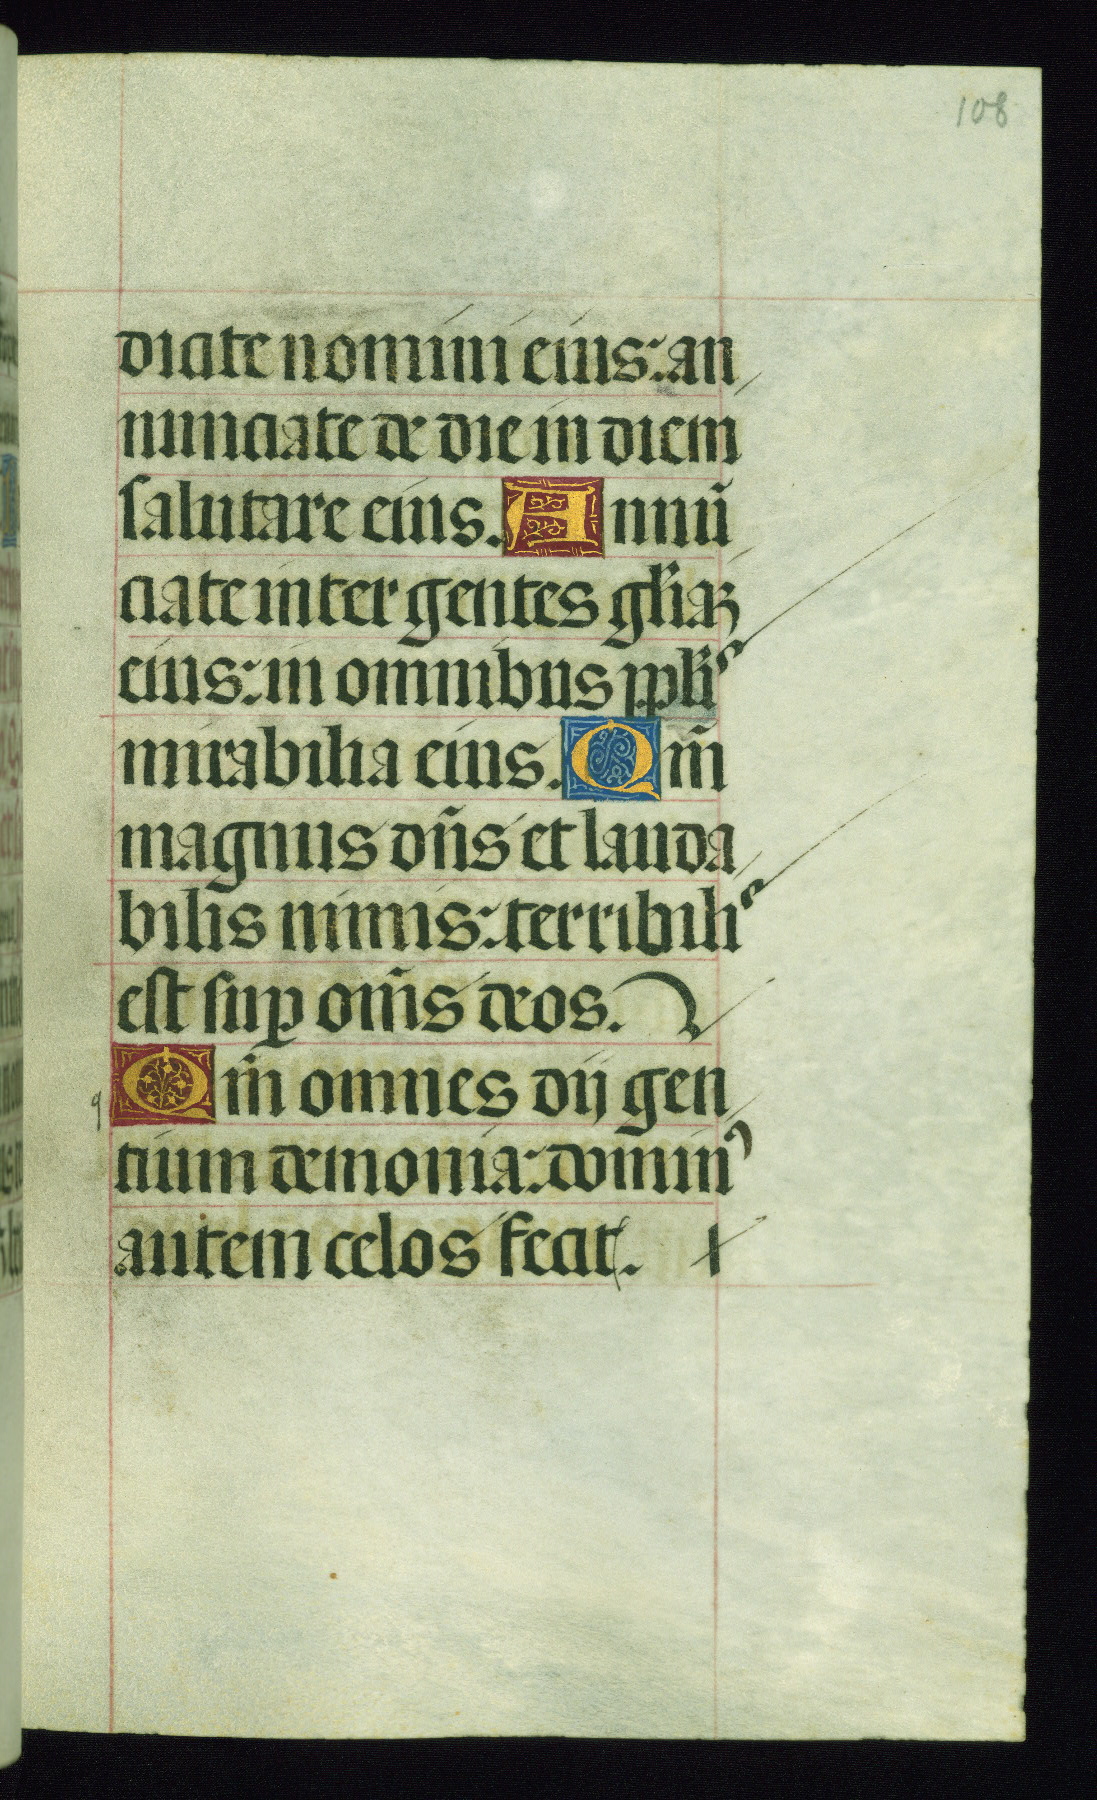 108
dicite nomini eius: an
nunciate de die in diem
salutare eius. Annū
ciate inter gentes gl̄iaꝫ
eius: in omnibus ppl̄is
mirabilia eius. Qm̄
magnus dn̄s et lauda
bilis nimis: terribilis
est suꝑ om̄s deos.
q Qm̄ omnes dij gen
tium demonia: dominꝰ
autem celos fecit.